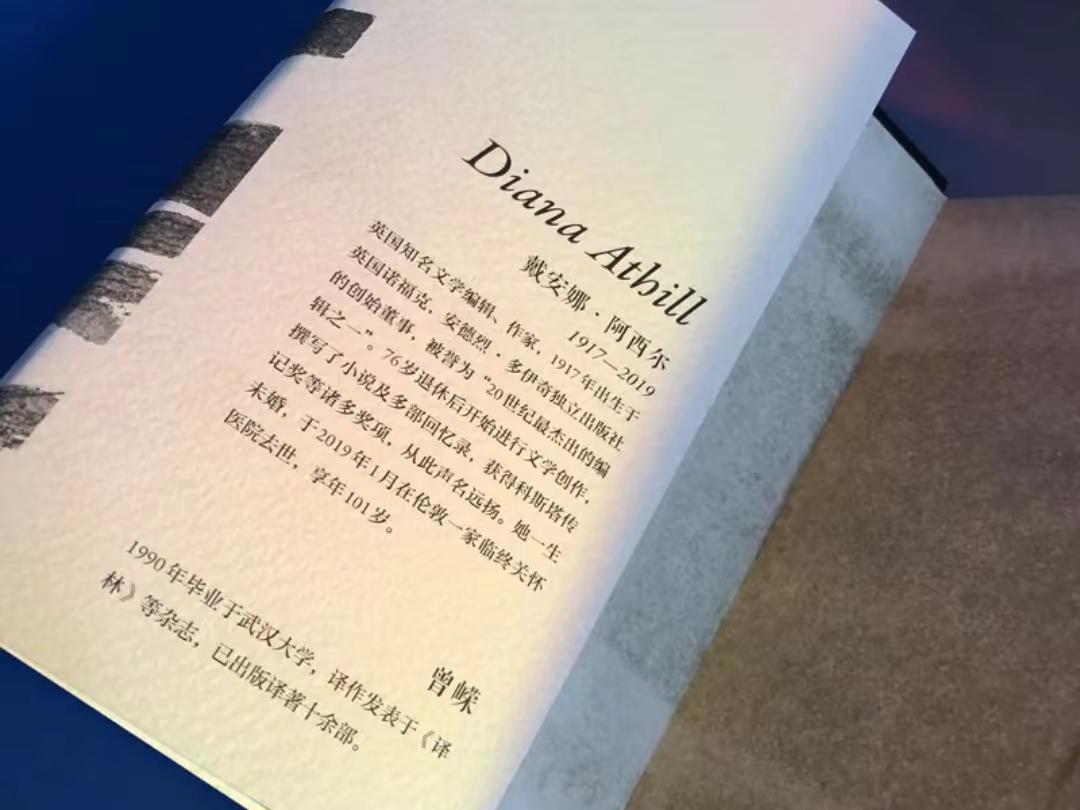 Diana Athill
戴安娜·阿西尔
1917—2019
英国知名文学编辑、作家，1917年出生于
英国诺福克，安德烈·多伊奇独立出版社
的创始董事，被誉为“20世纪最杰出的编
辑之一”。76岁退休后开始进行文学创作，
撰写了小说及多部回忆录，获得科斯塔传
记奖等诸多奖项，从此声名远扬。她一生
未婚，于2019年1月在伦敦一家临终关怀
医院去世，享年101岁。
曾嵘
1990年毕业于武汉大学，译作发表于《译
林》等杂志，已出版译著十余部。